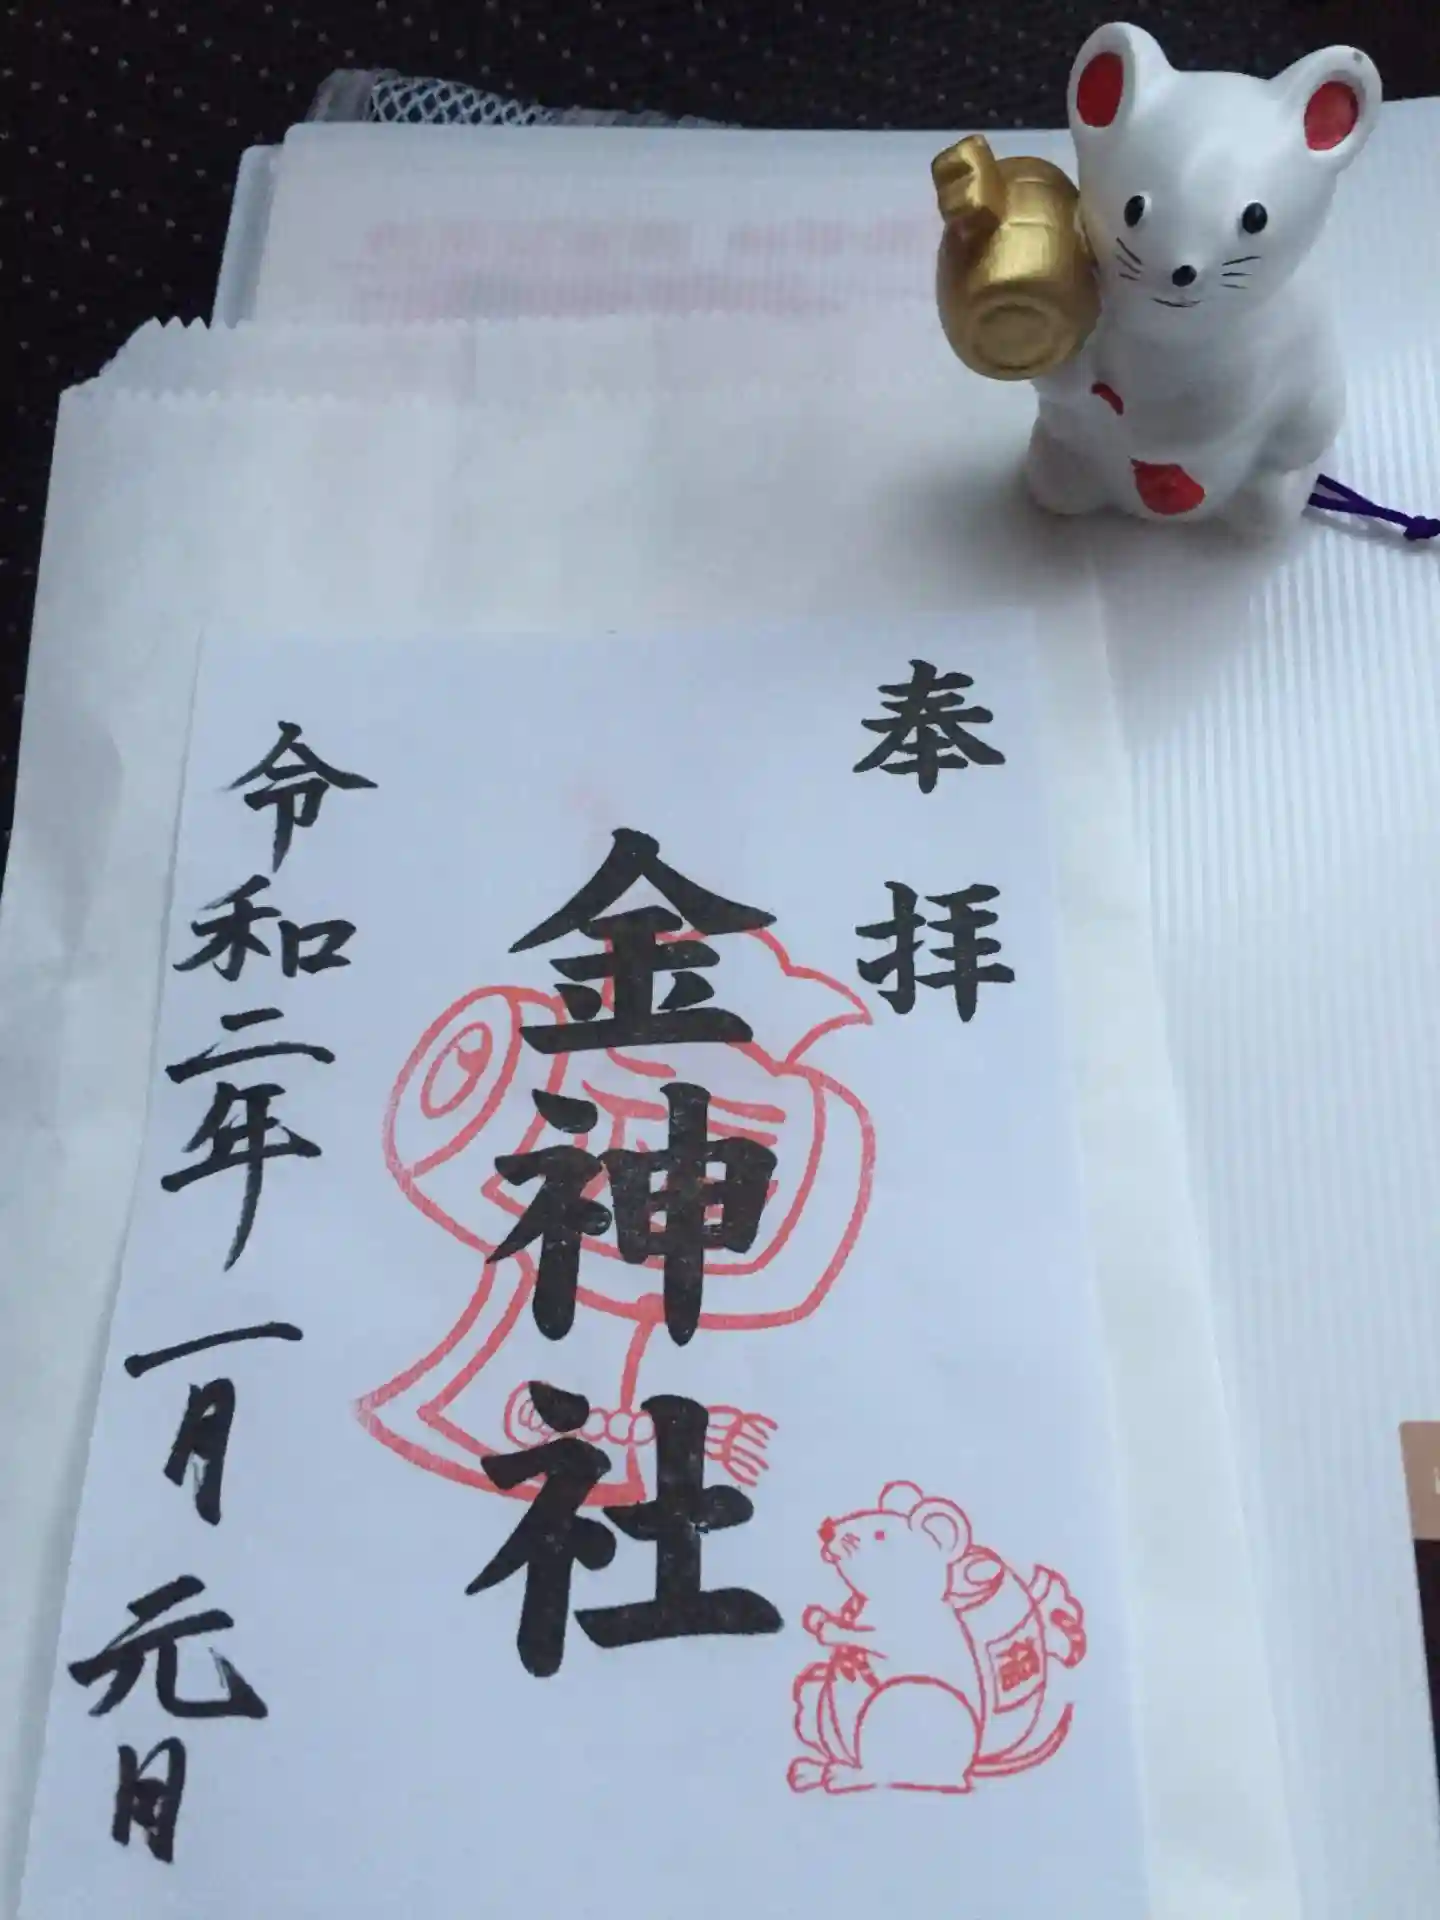 奉拝
金神社
令和二年一月元日
福